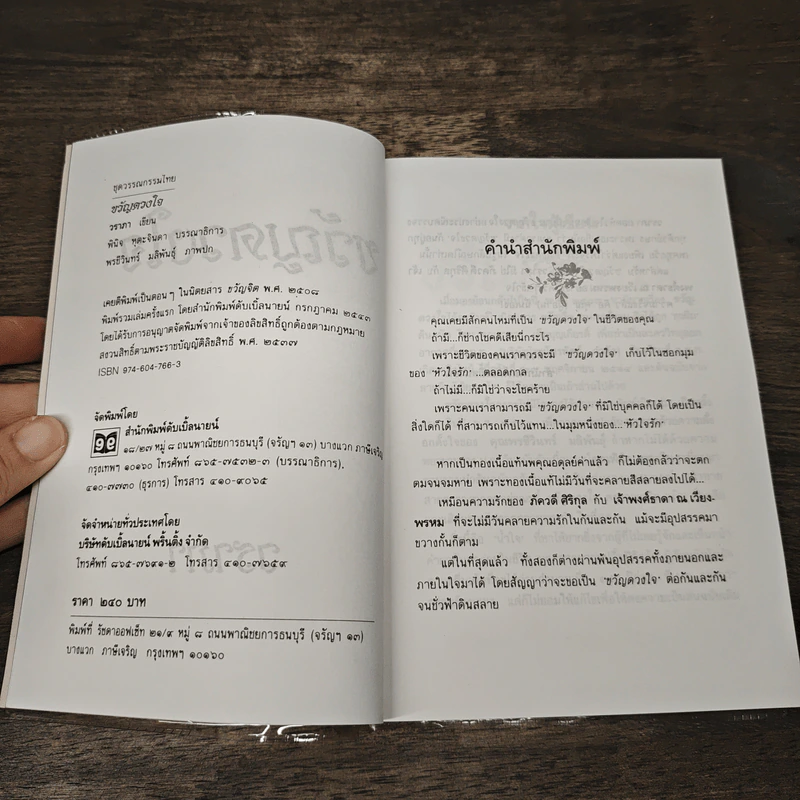 ชุดวรรณกรรมไทย
ขวัญดวงใจ
วราภา เขียน
พินิจ หุตะจินดา บรรณาธิการ
พรชีวินทร์ มลิพันธุ์ ภาพปก
เคยตีพิมพ์เป็นตอนๆ ในนิตยสาร ขวัญจิต พ.ศ. ๒๕๐๘
พิมพ์รวมเล่มครั้งแรก โดยสำนักพิมพ์ดับเบิ้ลนายน์ กรกฎาคม ๒๕๔๓
โดยได้รับการอนุญาตจัดพิมพ์จากเจ้าของลิขสิทธิ์ถูกต้องตามกฎหมาย
สงวนสิทธิ์ตามพระราชบัญญัติลิขสิทธิ์ พ.ศ. ๒๕๓๗
ISBN 974-604-766-3
จัดพิมพ์โดย
สำนักพิมพ์ดับเบิ้ลนายน์
๑๘/๒๗ หมู่ ๘ ถนนพาณิชยการธนบุรี (จรัญฯ ๑๓) บางแวก ภาษีเจริญ
กรุงเทพฯ ๑๐๑๖๐ โทรศัพท์ ๘๖๕-๗๕๓๒-๓ (บรรณาธิการ).
๔๑๐-๗๗๓๐ (ธุรการ) โทรสาร ๔๑๐-๙๐๖๕
จัดจำหน่ายทั่วประเทศโดย
บริษัทดับเบิ้ลนายน์ พริ้นติ้ง จำกัด
โทรศัพท์ ๘๖๕-๗๖๙๑-๒ โทรสาร ๔๑๐-๗๖๕๙
ราคา ๒๔๐ บาท
พิมพ์ที่ รัชดาออฟเซ็ท ๒๑/๙ หมู่ ๘ ถนนพาณิชยการธนบุรี (จรัญฯ ๑๓)
บางแวก ภาษีเจริญ กรุงเทพฯ ๑๐๑๖๐
คำนำสำนักพิมพ์
คุณเคยมีสักคนไหมที่เป็น 'ขวัญดวงใจ' ในชีวิตของคุณ
ถ้ามี...ก็ช่างโชคดีเสียนี่กระไร
เพราะชีวิตของคนเราควรจะมี 'ขวัญดวงใจ' เก็บไว้ในซอกมุม
ของ 'หัวใจรัก' ...ตลอดกาล
ถ้าไม่มี...ก็มิใช่ว่าจะโชคร้าย
เพราะคนเราสามารถมี 'ขวัญดวงใจ' ที่มิใช่บุคคลก็ได้ โดยเป็น
สิ่งใดก็ได้ ที่สามารถเก็บไว้แทน...ในมุมหนึ่งของ...'หัวใจรัก'
หากเป็นทองเนื้อแท้นพคุณอดุลย์ค่าแล้ว ก็ไม่ต้องกลัวว่าจะตก
ตมจนจมหาย เพราะทองเนื้อแท้ไม่มีวันที่จะคลายสีสลายลงไปได้...
เหมือนความรักของ ภัควดี ศิริกุล กับ เจ้าพงศ์ธาดา ณ เวียง-
พรหม ที่จะไม่มีวันคลายความรักในกันและกัน แม้จะมีอุปสรรคมา
ขวางกั้นก็ตาม
แต่ในที่สุดแล้ว ทั้งสองก็ต่างผ่านพ้นอุปสรรคทั้งภายนอกและ
ภายในใจมาได้ โดยสัญญาว่าจะขอเป็น 'ขวัญดวงใจ' ต่อกันและกัน
จนชั่วฟ้าดินสลาย